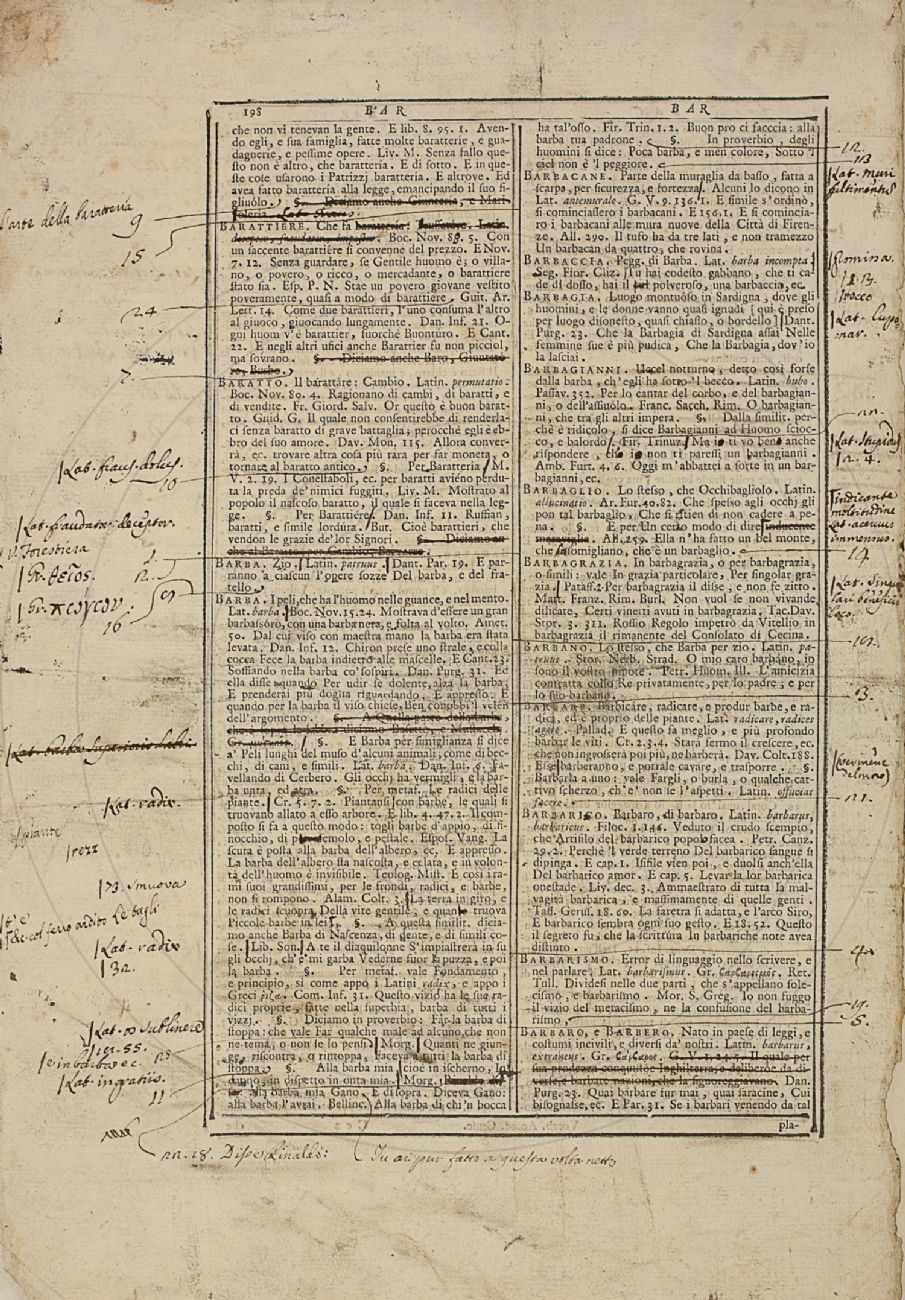 198
BAR
BAR
che non vi tenevan la gente. E lib. 8. 95. 1. Aven-
do egli, e sua famiglia, fatte molte baratterie, e gua-
dagnerie, e pessime opere. Liv. M. Senza fallo que-
sto non è altro, che baratteria. E di sotto. E in que-
ste cose usarono i Patrizzj baratteria. E altrove. Ed
avea fatto baratteria alla legge, emancipando il suo fi-
gliuolo.
BARATTIERE. Che fa
Boc. Nov. 80. 5. Con
un saccente barattiére si convenne del prezzo. E Nov.
7. 12. Senza guardare, se Gentile huomo è; o villa-
no, o povero, o ricco, o mercadante, o barattiere
stato sia. Esp. P. N. Stae un povero giovane vestito
poveramente, quasi a modo di barattiere. Guit. Ar.
Lett. 14. Come due barattieri, l'uno consuma l'altro
al giuoco, giuocando lungamente. Dan. Inf. 21. O-
gni huom v'è barattier, fuorchè Buonturo. E Cant.
22. E negli altri ufici anche Barattier fu non picciol,
ma sovrano. §. Diciamo anche Baro,
BARATTO. Il barattare: Cambio. Latin. permutatio.
Boc. Nov. 80. 4. Ragionano di cambi, di baratti, e
di vendite. Fr. Giord. Salv. Or questo è buon barat-
to. Guid. G. Il quale non consentirebbe di renderla-
ci senza baratto di grave battaglia; perocchè egli è eb-
bro del suo amore. Dav. Mon. 115. Allora conver-
rà, ec. trovare altra cosa più rara per far moneta, o
tornare al baratto antico. §. Per Baratteria M.
V. 2. 19. I Conestaboli, ec. per baratti aviéno perdu-
ta la preda de'nimici fuggiti. Liv. M. Mostrato al
popolo il nascoso baratto, il quale si faceva nella leg-
ge. §. Per Barattiére. Dan. Inf. 11. Ruffian,
baratti, e simile lordúra. But. Cioè barattieri, che
vendon le grazie de'lor Signori. §. Diciamo an-
che al Baratto per Cambio,
BARBA. Zio. Latin. patruus. Dant. Par. 19. E par-
ranno a ciascun l'opere sozze Del barba, e del fra-
tello.
BARBA. I peli, che ha l'huomo nelle guance, e nel mento.
Lat. barba. Boc. Nov. 15. 24. Mostrava d'essere un gran
barbassoro, con una barba nera, e folta al volto. Amet.
50. Dal cui viso con maestra mano la barba era stata
levata. Dan. Inf. 12. Chiron prese uno strale, e colla
cocca Fece la barba indietro alle mascelle. E Cant. 23.
Soffiando nella barba co'sospiri. Dan. Purg. 31. Ed
ella disse quando Per udir se dolente, alza la barba,
E prenderai più doglia riguardando. E appresso. E
quando per la barba il viso chiese, Ben conobbi'l velen
dell'argomento.
§. E Barba per simiglianza si dice
a' Peli lunghi del muso d'alcuni animali, come di bec-
chi, di cani, e simili. Lat. barba. Dan. Inf. 6. Fa-
vellando di Cerbero. Gli occhj ha vermigli, e la bar-
ba unta, ed atra. §. Per metaf. Le radici delle
piante. Cr. 5. 7. 2. Piantansi con barbe, le quali si
truovano allato a esso arbore. E lib. 4. 47. 2. Il com-
posto si fa a questo modo: togli barbe d'appio, di fi-
nocchio, di petrosemolo, e pestale. Espos. Vang. La
scura è posta alla barba dell'albero, ec. E appresso.
La barba dell'albero sta nascosta, e celata, e in volon-
tà dell'huomo è invisibile. Teolog. Mist. E così i ra-
mi suoi grandissimi, per le frondi, radici, e barbe,
non si rompono. Alam. Colt. 3. La terra in giro, e
le radici scuopra Della vite gentile, e quante truova
Piccole barbe in lei. §. A questa similit. dicia-
mo anche Barba di Nascenza, di dente, e di simili co-
se. Lib. Son. A te il diaquilonne S'impiastrerà in su
gli occhj, ch'e' mi garba Vederne fuor la puzza, e poi
la barba. §. Per metaf. vale Fondamento,
e principio, sì come appo i Latini radix, e appo i
Greci ῥίζα. Com. Inf. 31. Questo vizio ha le sue ra-
dici proprie, fatte nella superbia, barba di tutti i
vizzj. §. Diciamo in proverbio: Far la barba di
stoppa: che vale Far qualche male ad alcuno, che non
ne tema, o non se lo pensi. Morg. Quanti ne giun-
ge, riscontra, o rintoppa, Faceva a tutti la barba di
stoppa. §. Alla barba mia, cioè in ischerno,
danno, in dispetto in onta mia. Morg.
alla barba mia Gano. E di sopra. Diceva Gano:
alla barba l'avrai. Bellinc. Alla barba di chi'n bocca
ha tal'osso. Fir. Trin. 1. 2. Buon pro ci facccia: alla
barba tua padrone. §. In proverbio, degli
huomini si dice: Poca barba, e men colore, Sotto 'l
ciel non è 'l peggiore.
BARBACANE. Parte della muraglia da basso, fatta a
scarpa, per sicurezza, e fortezza. Alcuni lo dicono in
Lat. antemurale. G. V. 9. 136. 1. E simile s'ordinò,
si cominciassero i barbacani. E 156. 1. E si comincia-
ro i barbacani alle mura nuove della Città di Firen-
ze. All. 290. Il tufo ha da tre lati, e non tramezzo
Un barbacan da quattro, che rovina.
BARBACCIA. Pegg. di Barba. Lat. barba incompta.
Seg. Fior. Cliz. Tu hai codesto gabbano, che ti ca-
de di dosso, hai il polveroso, una barbaccia, ec.
BARBAGIA. Luogo montuoso in Sardigna, dove gli
huomini, e le donne vanno quasi ignudi [ qui è preso
per luogo disonesto, quasi chiasso, o bordello ] Dant.
Purg. 23. Che la Barbagia di Sardigna assai Nelle
femmine sue è più pudica, Che la Barbagia, dov'io
la lasciai.
BARBAGIANNI. Uccel notturno, detto così forse
dalla barba, ch'egli ha sotto 'l becco. Latin. bubo.
Passav. 352. Per lo cantar del corbo, e del barbagian-
ni, o dell'assiuólo. Franc. Sacch. Rim. O barbagian-
ni, che tra gli altri impera. §. Dalla similit. per-
chè è ridicolo, si dice Barbagianni ad Huomo scioc-
co, e balordo. Fir. Trinuz. Ma io ti vo bene anche
rispondere, che io non ti paressi un barbagianni.
Amb. Furt. 4. 6. Oggi m'abbattei a sorte in un bar-
bagianni, ec.
BARBAGLIO. Lo stesso, che Occhibagliolo. Latin.
allucinatio. Ar. Fur. 40. 82. Che spesso agli occhj gli
pon tal barbaglio, Che si ritien di non cadere a pe-
na. §. E per Un certo modo di dire
All. 259. Ella n'ha fatto un bel monte,
che somigliano, che è un barbaglio.
BARBAGRAZIA. In barbagrazia, o per barbagrazia,
o simili: vale In grazia particolare, Per singolar gra-
zia. Pataff. Per barbagrazia il disse, e non fe zitto.
Mart. Franz. Rim. Burl. Non vuol se non vivande
dilicate, Certi vinetti avuti in barbagrazia, Tac. Dav.
Stor. 3. 311. Rossio Regolo impetrò da Vitellio in
barbagrazia il rimanente del Consolato di Cecina.
BARBANO. Lo stesso, che Barba per zio. Latin. pa-
truus. Stor. Nerb. Strad. O mio caro barbano, io
sono il vostro nipote. Petr. Huom. Ill. L'amicizia
contratta collo Re privatamente, per lo padre, e per
lo suo barbano.
BARBARE. Barbicáre, radicare, e produr barbe, e ra-
dici, ed è proprio delle piante. Lat. radicare, radices
agere. Pallad. E questo fa meglio, e più profondo
barbar le viti. Cr. 2. 3. 4. Stará fermo il crescere, ec.
che non ingrosserà poi più, ne barberà. Dav. Colt. 188.
E se barberanno, e potrale cavare, e trasporre. §.
Barbarla a uno: vale Fargli, o burla, o qualche cat-
tivo scherzo, ch'e' non se l'aspetti. Latin. officias
facere.
BARBARICO. Barbaro, di barbaro. Latin. barbarus,
barbaricus. Filoc. 1. 146. Veduto il crudo scempio,
che 'Artusilo del barbarico popolo facea. Petr. Canz.
29. 2. Perchè 'l verde terreno Del barbarico sangue si
dipinga. E cap. 1. Isifile vien poi, e duolsi anch'ella
Del barbarico amor. E cap. 5. Levar la lor barbarica
onestade. Liv. dec. 3. Ammaestrato di tutta la mal-
vagità barbarica, e massimamente di quelle genti.
Tass. Gerus. 18. 60. La faretra si adatta, e l'arco Siro,
E barbarico sembra ogni suo gesto. E 18. 52. Questo
il segreto fu, che la scrittúra In barbariche note avea
distinto.
BARBARISMO. Error di linguaggio nello scrivere, e
nel parlare. Lat. barbarismus. Gr. βαρβαρισμός. Ret.
Tull. Dividesi nelle due parti, che s'appellano sole-
cismo, e barbarismo. Mor. S. Greg. Io non fuggo
il vizio del metacismo, ne la confusione del barba-
rismo.
BARBARO, e BARBERO. Nato in paese di leggi, e
costumi incivili, e diversi da' nostri. Latin. barbarus,
extraneus. Gr. βάρβαρος. G. V. 1. 24. 5. Il quale per
sua prodezza conquistóe Inghilterra, e deliberóe da di-
verse, e barbare nazioni, che la signoreggiavano. Dan.
Purg. 23. Quai barbare fur mai, quai saracine, Cui
bisognasse, ec. E Par. 31. Se i barbari venendo da tal
pla-
l'arte della Baratteria
9
15
24
7.
Lat. fraus. dolus.
10
Lat. fraudator. deceptor.
V. Forestiera
Gr. θεῖος.
1.
12.
9
16
Lat. barba superioris labii
Lat. radix.
piante
73. Smuova
col ferro ardito le tagli
Lat. radix
32.
Lat. os sublinere
28
e in barba ec.
Lat. ingratiis.
11
12.
13
Lat. muri
Lat. Lupa-
nar.
Lat. stupidus
2. 4.
Indicante
moltitudine
Lat. acervus
immensus.
14
Lat. singu-
lari beneficii
loco.
19.
13.
21.
5.
nn. 18. Disse Rinaldo: Tu ai pur fatto a questa volta netto